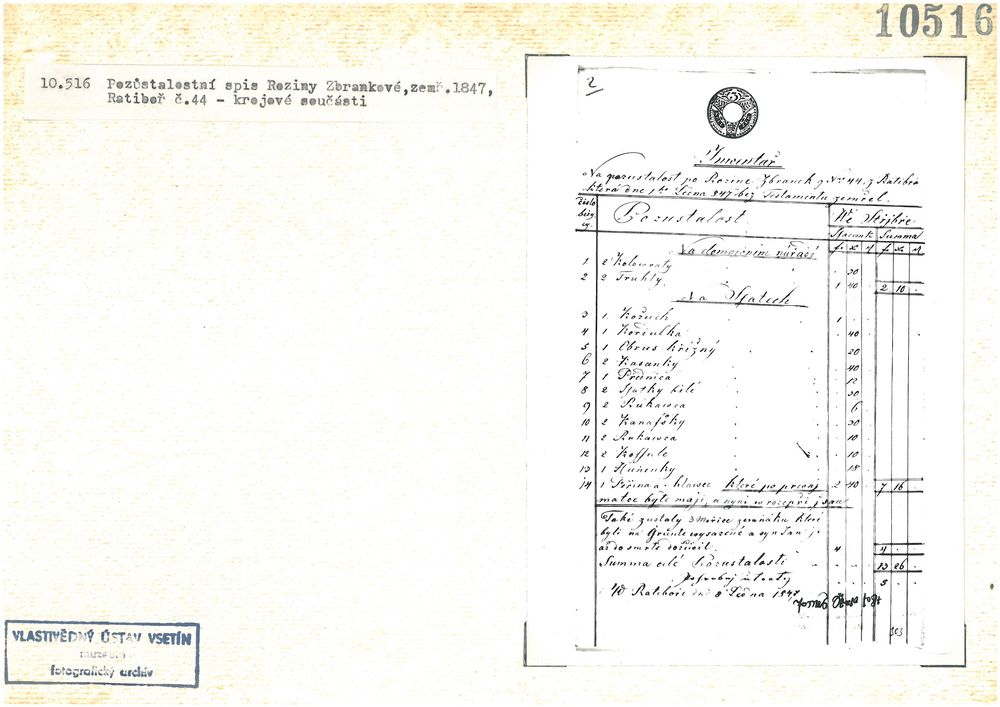 10516
10.516 Pozůstalostní spis Roziny Zbrankové,zemř.1847,
Ratiboř č.44 - krojové součásti
2
Inwentař
Na pozustalost po Rozine Zbrank z No 44. z Ratibo
která dne 1ho Ledna 847 bez Testamentu zemřel.
Pozustalost
We Střjbře
Summa
f. x f. x
Na domownim nařaďj
1 2 Kolowraty . 30
2 2 Truhly. 1 40 2 10 .
Na Šatech
3 1. Kožuch 1 .
4 1 Kordulka . 40
5 1 Obrus křižný . 20
6 2 Kasanky . 40
7 1 Přednica . 12
8 2 Šatky bilé . 30
9 2 Rukawca . 6
10 2 Kanafsky . 30
11 2 Rukawca . 10
12 2 Koffule . 10
13 1 Huninky . 18
14 1 a hlawec které po prwnj 2 40 7 16
matce byli maji, a nyni w rozepři jsau
Také zustaly 3 Měřice zemňáku které
byli na Grunte wysazené a syn Jan j
až do smrti
4 . 4 .
Summa celé Pozustalosti 13 26
5
W Ratiboři dne 8 Ledna 1847
303
VLASTIVĚDNÝ ÚSTAV VSETÍN
muzeum
fotografický archiv